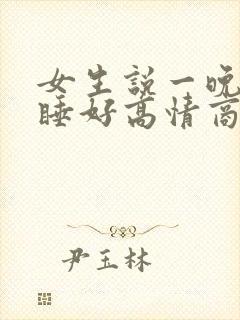 女生説一晚
睡好高情商
尹玉林